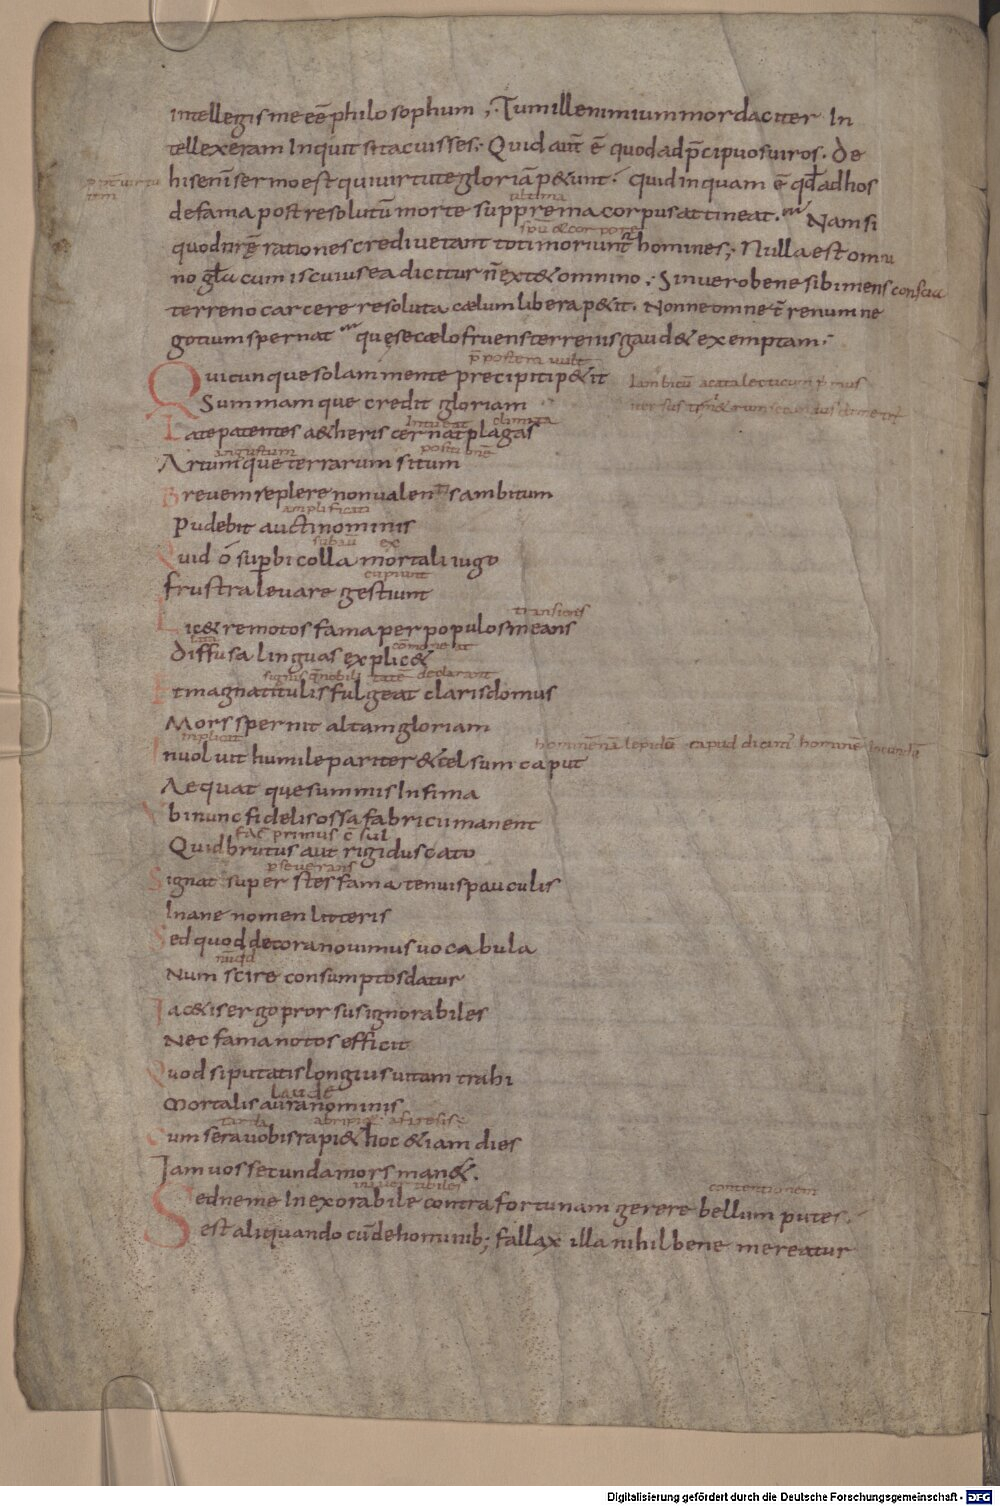 intellegis me eē philosophum ;· Tum ille nimium mordaciter In
tellexeram Inquit si tacuisses;· Quid aut̄ ē quod ad p̄cipuos uiros· de
pp̄t uirtu
tem
his enī sermo est qui uirtute gloriā p&unt·́ quid inquam ē qd̄ ad hos
ultima
de fama post resolutū morte supprema corpus attineat·́ Nam si
sp̄u & corpore
quod nr̄ę rationes credi uetant toti moriunt̄ homines; Nulla est omni
no gl̄a cum is cuius ea dicitur n̄ ext& omnino ;· Sin uero bene sibi mens conscia
terreno carcere resoluta cælum libera p&it· Nonne omne t̄renum ne
gotium spernat quę se cælo fruens terrenis gaud& exemptam·
p̄postera
Quicunque solam mente precipiti p&it
Iambicū acatalecticum
Summamque credit gloriam
Intueat climata
Late patentes aetheris cernat plagas
angustum positionē
Artumque terrarum situm
Breuem replere non ualentis ambitum
amplificati
Pudebit aucti nominis
subau ex
Quid ó sup̄bi colla mortali iugo
cupiunt
frustra leuare gestiunt
transiens
Lic& remotos fama per populos means
diffusa linguas explic&
declarant
Et magna titulis fulgeat claris domus
Mors spernit altam gloriam
implicat
Inuoluit humile pariter & celsum caput
Aequatque summis Infima
Vbi nunc fidelis ossa fabricii manent
primus
Quid brutus aut rigidus cato
p̄seuerans
Signat superstes fama tenuis pauculis
Inane nomen litteris
Sed quod decora nouimus uocabula
Num scire consumptos datur
Iac&is ergo prorsus ignorabiles
Nec fama notos efficit
Quod si putatis longius uitam trahi
laude
Mortalis aura nominis
tarda
Cum sera uobis rapi& hoc &iam dies
Iam uos secunda mors man&·
contentionem
Sed ne me Inexorabile contra fortunam gerere bellum putes·
est aliquando cū de hominib; fallax illa nihil bene mereatur
Digitalisierung gefördert durch die Deutsche Forschungsgemeinschaft - DFG